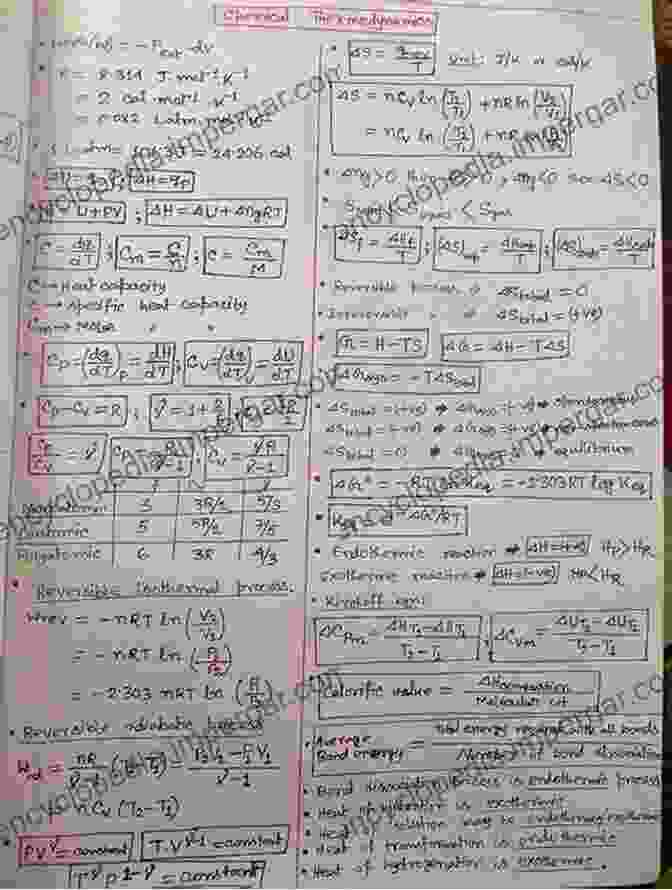 Chemical Thermodynamics
= -Pext dV
R = 8.314 J mol⁻¹ K⁻¹
= 2 cal mol⁻¹ K⁻¹
= 0.082 L atm mol⁻¹ K⁻¹
= 24.206 cal
ΔH = qp
= U+PV ; ΔH = ΔU + ΔngRT
C = dq/dT ; Cm = C/n ; c = Cm/M
C → Heat capacity
c → specific heat capacity
Cm → Molar " "
CP = (dq/dT)P = dH/dT ; CV = (dq/dT) = dU/dT
CP - CV = R ; γ = 1 + R/
CP/CV = γ ; CV = R/γ-1
Monatomic 3 3R/2 5/3
Diatomic 5 5R/2 7/5
Polyatomic 6 3R 4/3
• Reversible isothermal process.
Wrev = -nRT ln (V2/V1)
= -nRT ln (P1/P2)
= -2.303 nRT ln (P1/P2)
• Reversible adiabatic process
Wad = nR/γ-1 (T2-T1) = P2V2-P1V1/γ-1
nCv (T2-T1)
• PVγ = constant T.Vγ-1 = constant
TγP1-γ = constant
• ΔS = qrev/T unit: J/K or cal/K
ΔS = nCv ln (T2/T1) + nR ln (V2/V1)
= nCv ln (T2/T1) + nR ln
• Δng>0 , Δng<0 ΔS<0
< Sgas
ΔSf = ΔHf/T ; (ΔS)vap = ΔHvap/T ; (ΔS)sub = ΔHsub/T
• Reversible process ⇒ ΔStotal = 0
• Irreversible " ⇒ ΔStotal = (+ve)
• G = H-TS ΔG = ΔH-TΔS
ΔGsys = -TΔStotal
• ΔStotal = (+ve) ⇒
ΔStotal = (-ve) ⇒
ΔStotal = 0 ⇒ equilibrium
• ΔG° = -RT ln Keq = -2.303RT log Keq
• Keq = e-ΔG°/RT
• Endothermic reaction ⇒ ΔH=(+ve) HP>HR
Exothermic reaction ⇒ ΔH=(-ve) HP<HR
• Kirchoff eqn:
ΔCPm = ΔHT2-ΔHT1/T2-T1 ; ΔCVm = ΔUT2-ΔUT1/T2-T1
Calorific value = ΔHcombustion/Molecular wt
• Average Bond energy = Total energy with all bonds/Number of bond dissociation
• Bond dissociation process is endothermic process
• Heat of hydration is exothermic
• Heat of solution may be endothermic/exothermic
• Heat of transformation is endothermic
• Heat of hydrogenation is exothermic.
encyclopedia.impergar.com